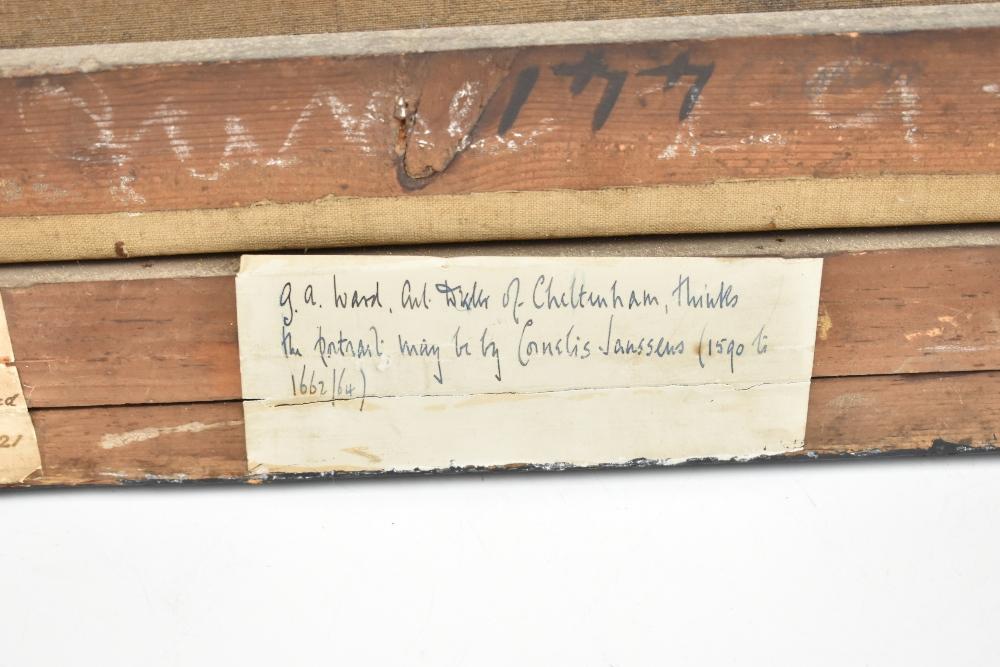 144
g. a. Ward, Art Dealer of Cheltenham, thinks
the portrait may be by Cornelis Janssens (1590 to
1662/64)
ed
21